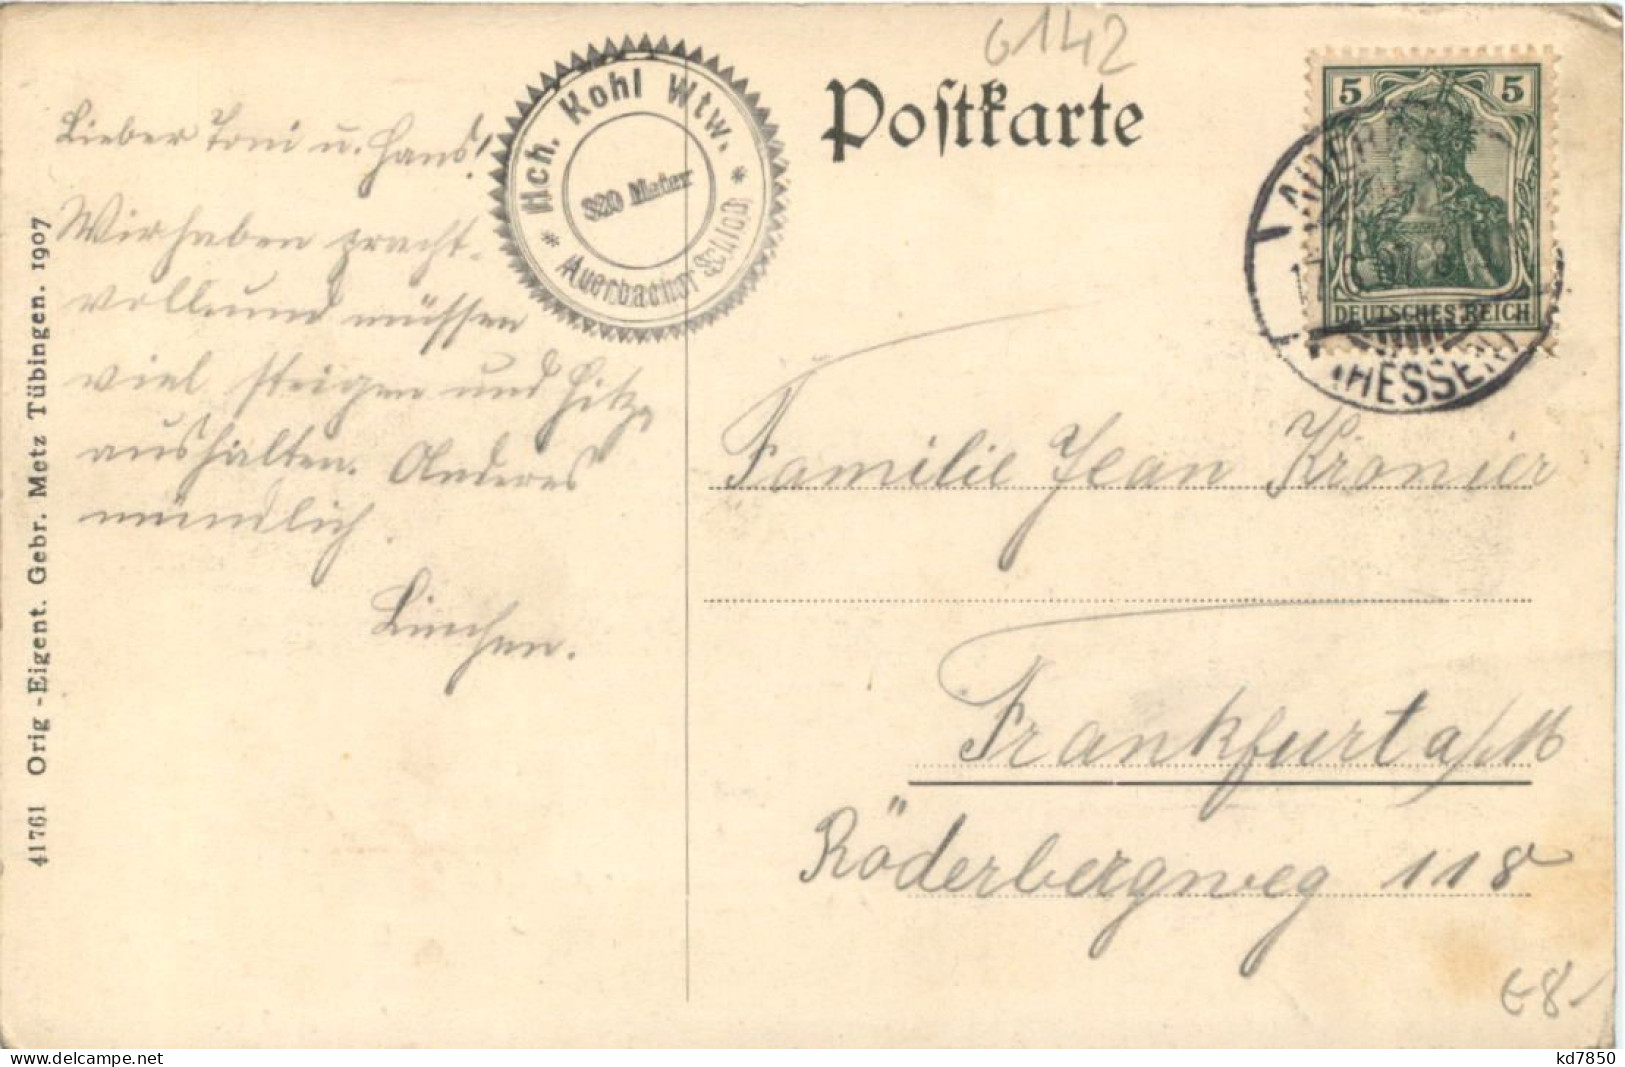 6142
Postkarte
Hch. Kohl Wtw.
320 Meter
* Auerbacher Schloß *
5 5
DEUTSCHES REICH
AUERB
(HESSEN)
Lieber Toni u. Hans!
Wir haben pracht-
voll und müssen
viel steigen und Hitze
aushalten. Anderes
mündlich.
Linchen.
Familie Jean Kronier
Frankfurt a/M
Röderbergweg 118
41761 Orig.-Eigent. Gebr. Metz Tübingen. 1907
€8-
kd7850